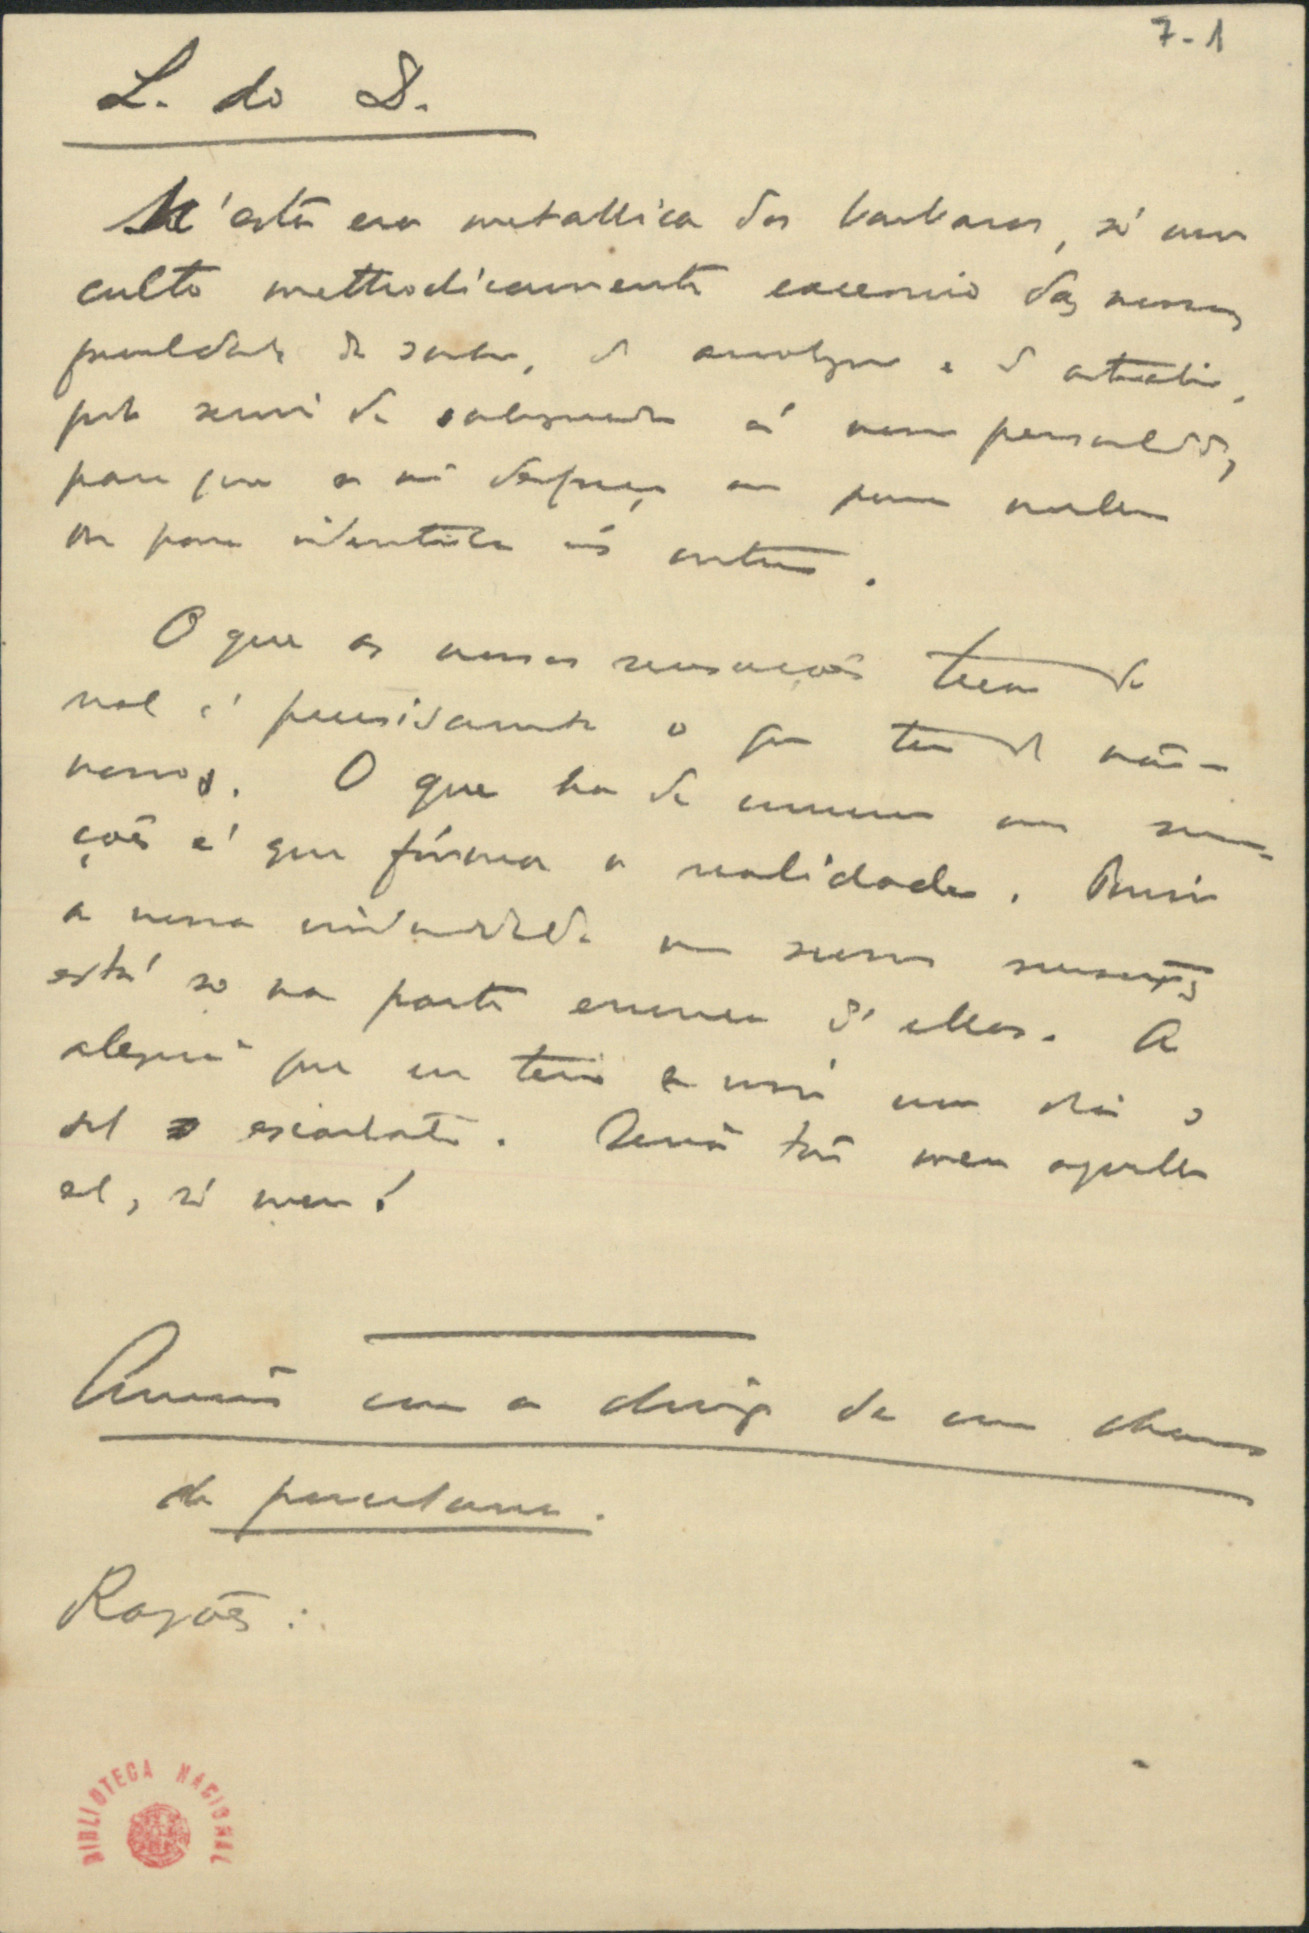 7-1
L. do D.
N'esta era metallica dos barbaros, só um
culto methodicamente excessivo das nossas
faculdades de sonhar, de analysar e de attrahir,
pode servir de salvaguarda á nossa personalidade,
para que se não desfaça ou para nulla
ou para identica ás outras.
O que as nossas sensações teem de
real é precisamente o que teem de não-
nossas. O que ha de commum nas sensa-
ções é que fórma a realidade. Por isso
a nossa individualidade nas nossas sensações
está só na parte erronea d'ellas. A
alegria que eu teria se visse um dia o
sol escarlate. Seria tão meu aquelle
sol, só meu!
Amores com a chineza de uma chavena
de porcelana.
Razões:
BIBLIOTECA NACIONAL